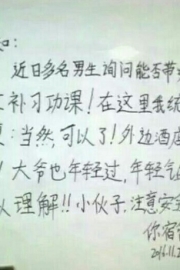 知：
近日多名男生询问能否带
补习功课！在这里我统
：当然，可以了！外边酒店
！大爷也年轻过，年轻气
以理解！！小伙子：注意安全
你宿管
2016.11.2